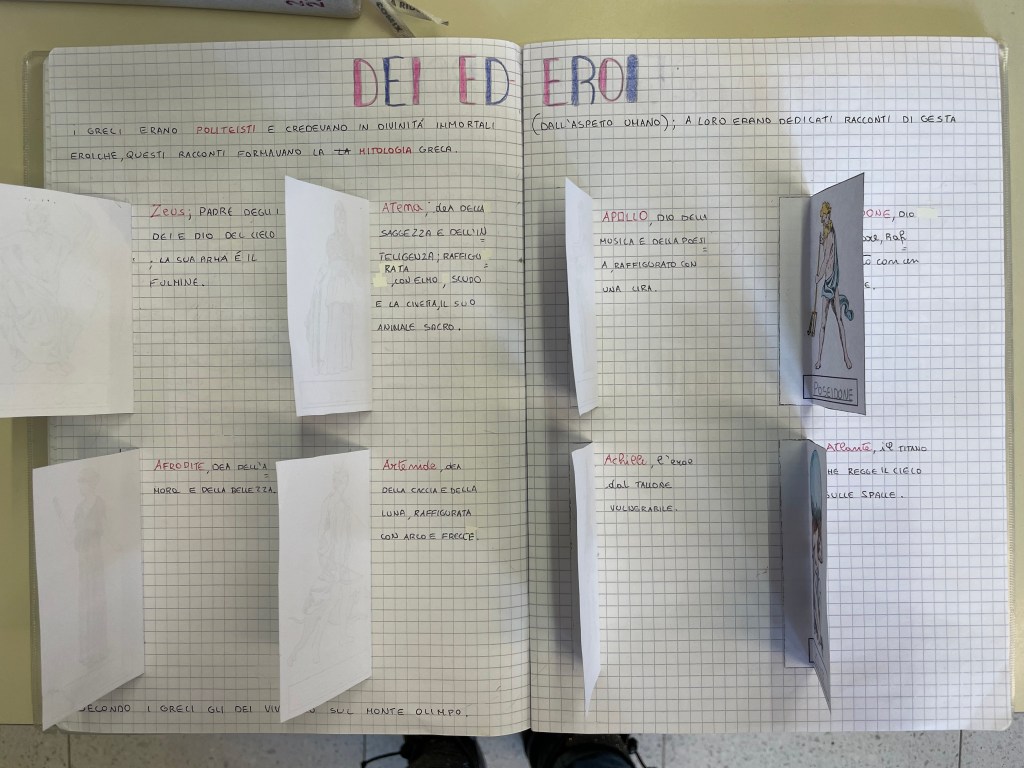 DEI ED EROI
I GRECI ERANO POLITEISTI E CREDEVANO IN DIVINITÁ IMMORTALI (DALL'ASPETTO UMANO); A LORO ERANO DEDICATI RACCONTI DI GESTA
EROICHE, QUESTI RACCONTI FORMAVANO LA MITOLOGIA GRECA.
Zeus; PADRE DEGLI
DEI E DIO DEL CIELO
; LA SUA ARMA É IL
FULMINE.
ATENA; DEA DELLA
SAGGEZZA E DELL'IN
TELIGENZA; RAFFIGU
RATA
, CON ELMO, SCUDO
E LA CIVETTA, IL SUO
ANIMALE SACRO.
APOLLO, DIO DELLA
MUSICA E DELLA POESI
A, RAFFIGURATO CON
UNA LIRA.
DONE, DIO
RAF
con un
POSEIDONE
AFRODITE, DEA DELL'A
MORE E DELLA BELLEZZA
Artemide, DEA
DELLA CACCIA E DELLA
LUNA, RAFFIGURATA
CON ARCO E FRECCE.
Achille, l'eroe
dal TALLONE
VULNERABILE.
Atlante, il TITANO
HE REGGE IL CIELO
SULLE SPALLE.
SECONDO I GRECI GLI DEI VIV SUL MONTE OLIMPO.